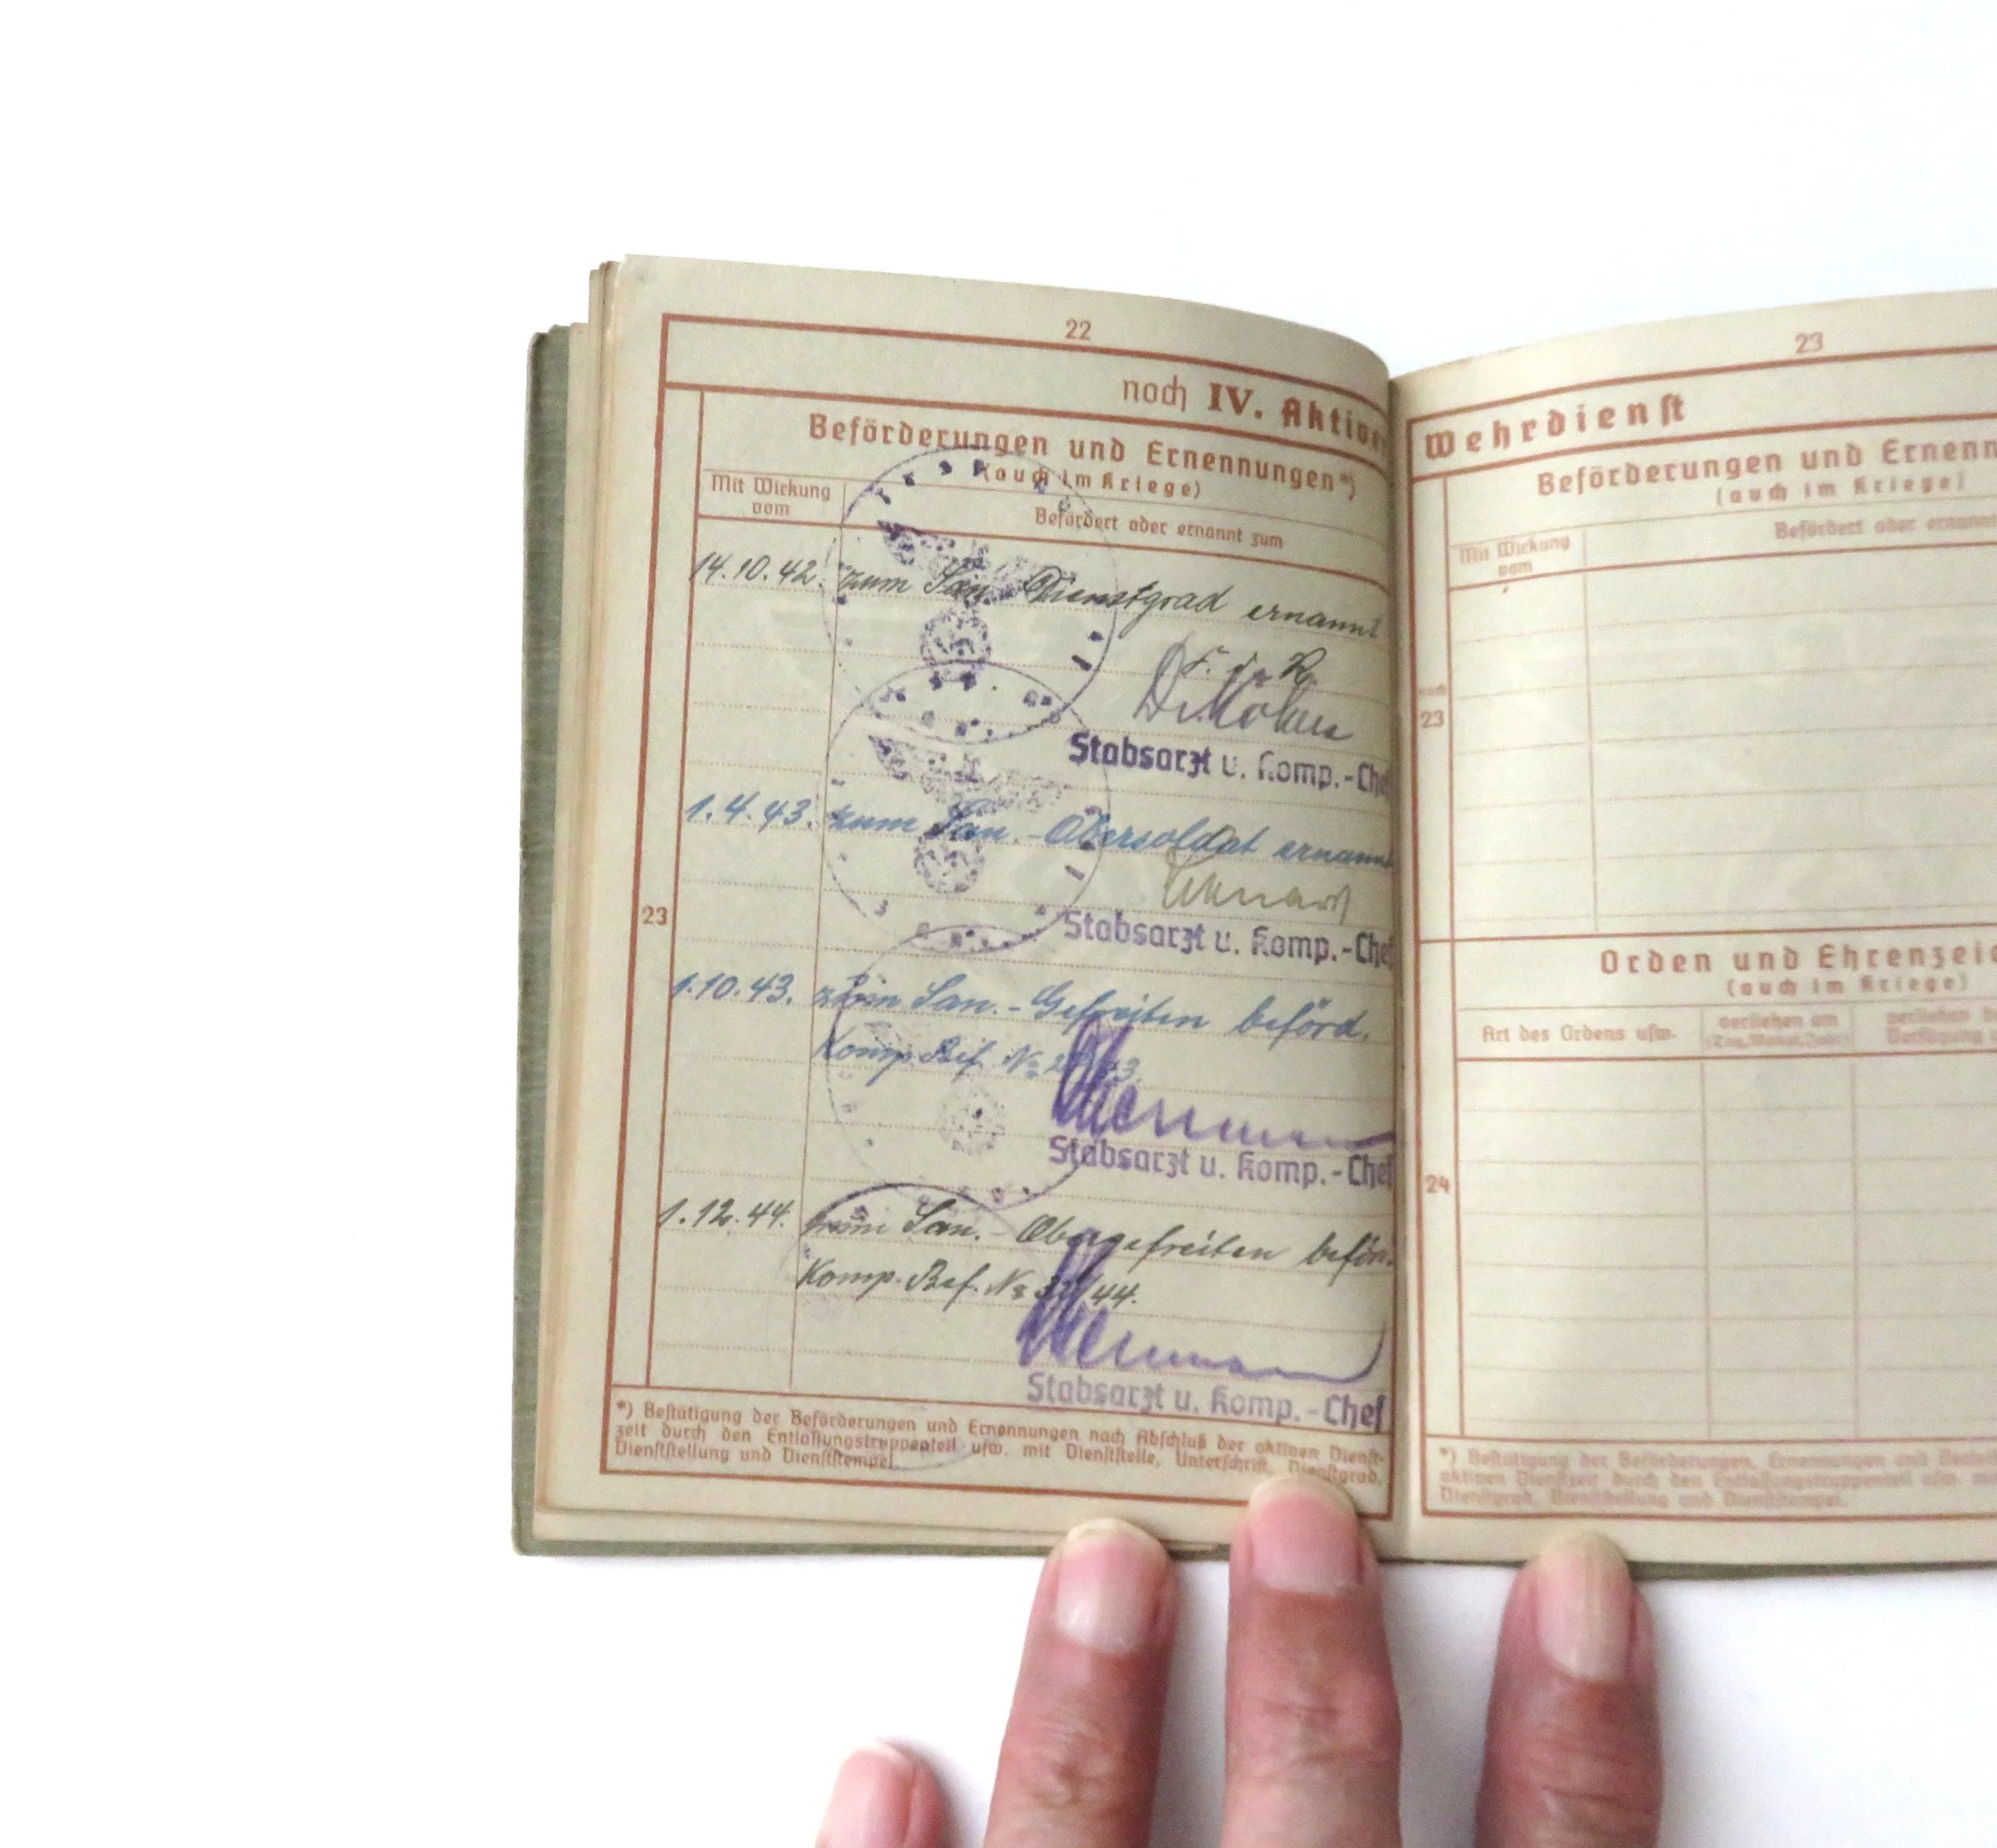 22
noch IV. Aktive
Beförderungen und Ernennungen*)
(auch im Kriege)
Mit Wirkung
vom
Befördert oder ernannt zum
14.10.42. zum San. Dienstgrad ernannt
F. d. R.
Stabsarzt u. Komp.-Chef
1.4.43. zum San.-Obersoldat ernannt
Stabsarzt u. Komp.-Chef
23
1.10.43. zum San.-Gefreiten beförd.
Komp. Bef. No
Stabsarzt u. Komp.-Chef
1.12.44. zum San.-Obergefreiten beförd.
Komp. Bef. No /44.
Stabsarzt u. Komp.-Chef
*) Bestätigung der Beförderungen und Ernennungen nach Abschluß der aktiven Dienst-
zeit durch den Entlassungstruppenteil usw. mit Dienststelle, Unterschrift, Dienstgrad,
Dienststellung und Dienststempel.
23
Wehrdienst
Beförderungen und Ernenn
(auch im Kriege)
Mit Wirkung
vom
Befördert oder ernannt
noch
23
Orden und Ehrenzeic
(auch im Kriege)
Art des Ordens usw.
verliehen am
(Tag, Monat, Jahr)
verliehen
Verfügung
24
*) Bestätigung der Beförderungen, Ernennungen und
aktiven Dienstzeit durch den Entlassungstruppenteil usw.
Dienstgrad, Dienststellung und Dienststempel.